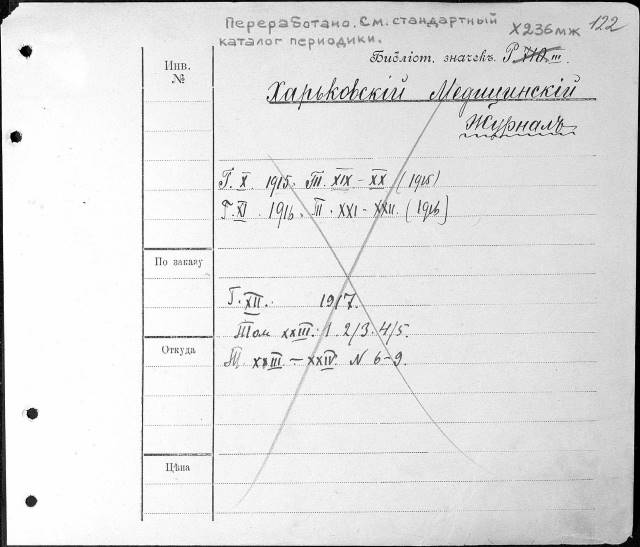 Переработано. См. стандартный
каталог периодики.
Х236мж
122
Инв.
№
Библіот. значекъ. P III.
Харьковскій Медицинскій
Журналъ
Г. X. 1915. Т. XIX – XX (1915)
Г. XI. 1916. Т. XXI – XXII. (1916]
По заказу
Г. XII. 1917.
Том XXIII. 1. 2/3. 4/5.
Откуда
Т. XXIII – XXIV. N 6–9.
Цѣна